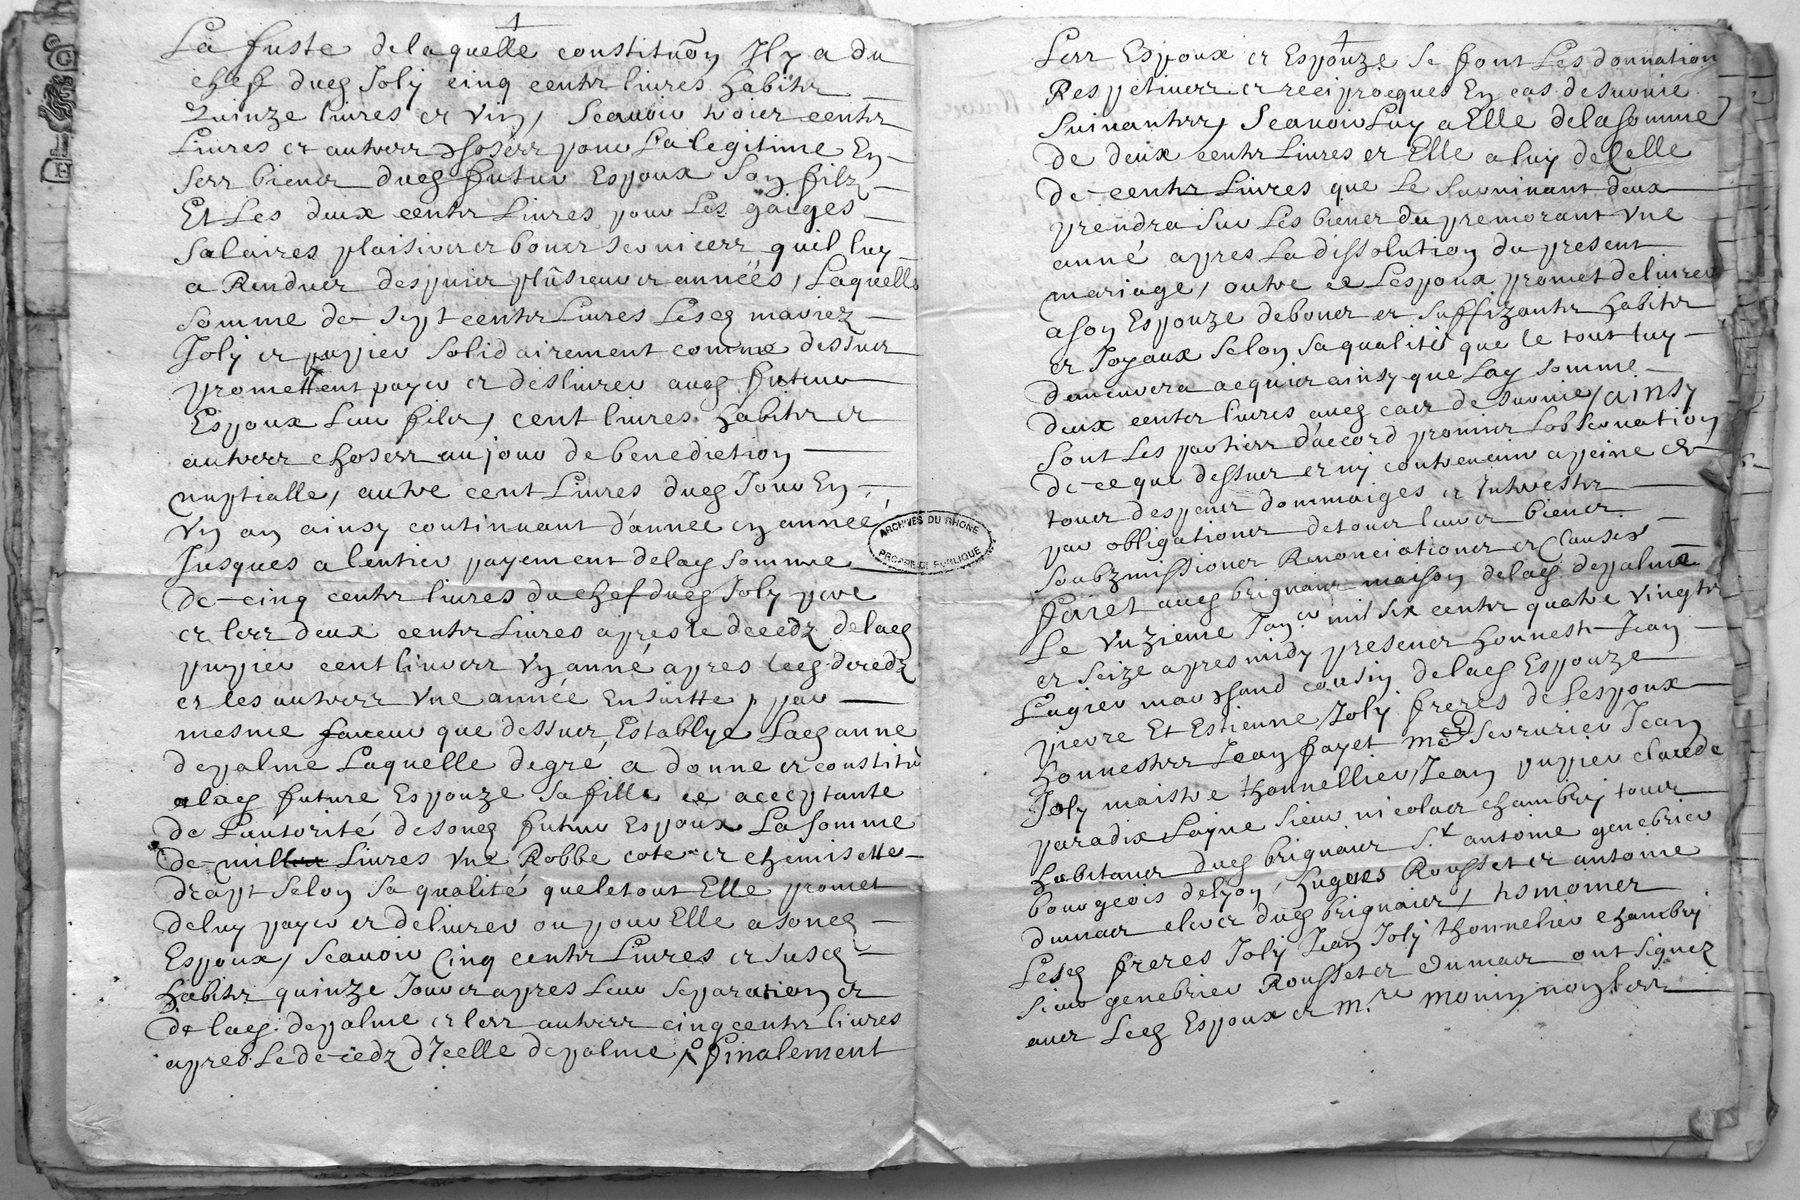 La juste de laquelle constitu͠on Jl y a du
chef dueg Joly cinq centz liures habitz
quinze liures et vin, Scauoir trois centz
Liures et autres choses pour Sa legitime En
Ses biens dueg futur Espoux Son filz
Et Les deux centz Liures pour Les gaiges
Salaires plaisirs et bons seruices quil luy
a Rendues despuis plusieurs années, Laquelle
Somme de Sept centz Liures Leseg mariez
Joly et puppier solidairement comme dessus
promettent payer et desliurer aueg futeur
Espoux Leur filz, cent liures habitz et
autres choses au jour de benediction
nuptialle, autre cent Liures dueg Jour En
vn an ainsy continuant dannee en année
Jusques a lentier payement delaeg somme
de cinq centz liures du chef dueg Joly pere
et les deux centz Liures apres le decedz delaeg
puppier cent liures vn anné apres leeg decedz
et les autres vne année Ensuitte, par
mesme faueur que dessus, Establye Laeg anne
depalme Laquelle de gré a donne et constitué
alaeg future Espouze Sa fille ce acceptante
de Lautorité de soneg futur Espoux La somme
de mil Liures vne Robbe cote et chemisette
drapt selon Sa qualité que le tout Elle promet
deluy payer et deliurer ou pour Elle a soneg
Espoux, Scauoir Cinq centz Liures et suseg
habitz quinze Jours apres Leur Separation et
de laeg depalme et les autres cinq centz liures
apres Le decedz dIcelle depalme, finalement
Les Espoux et Espouze Se font Les donnation
Respetiues et reciprocques En cas de suruie
Suiuantes, Scauoir Luy a Elle de la somme
de deux centz Liures et Elle a luy de celle
de centz Liures que Le Suruiuant deux
prendra Sur Les biens du premorant vne
anné apres La dissolution du present
mariage, outre ce Lespoux promet deliurer
a son Espouze de bons et suffizantz habitz
et Joyaux selon sa qualité que le tout luy
demeurera acquis ainsy que Lag somme
deux centz liures aueg cas de suruie, ainsy
Sont Les parties daccord promis Lobseruation
de ce que dessus et ny contreuenir a peine de
tous despens dommaiges et Intrestz
par obligations de tous leurs biens
Soubzmissions Renonciations et Clauses
Faict aueg brignais maison delaeg depalme
Le vnzieme Jan.er mil six centz quatre vingtz
et seize apres midy presens honneste Jean
Lagier marchand cousin delaeg Espouze
pierre Et Estienne Joly freres de Lespoux
honnestes Jean fayet me Serrurier Jean
Joly maistre thonnellier, Jean puppier claude
paradix Layne sieur nicolas chambry tous
habitans dueg brignais S.r antoine genebrier
bourgeois de lyon, hugues Rousset et antoine
dumas clercz dueg brignais, tesmoines
Leseg freres Joly Jean Joly thonnelier chambry
Sieur genebrier Rousset et dumas ont signez
auec Leeg Espoux et M.re
ARCHIVES DU RHONE
PROPRIETE PUBLIQUE